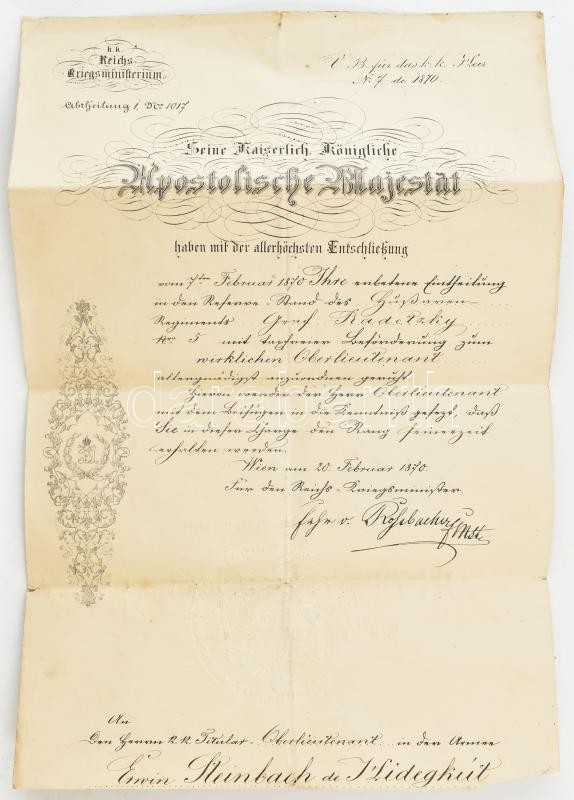 k.k.
Reichs
Kriegsministerium.
Abtheilung 1, No 1017
V. B. für das k. k. Heer
N. 7 de 1870.
Seine Kaiserlich. Königliche
Apostolische Majestät
haben mit der allerhöchsten Entschließung
vom 7ten Februar 1870 Ihre erbetene Eintheilung
in den Reserve-Stand des Hußaren-
Regiments Graf Radetzky
Nro 5 mit taxfreier Beförderung zum
wirklichen Oberlieutenant
allergnädigst anzuordnen geruht.
Hievon werden der Herr Oberlieutenant
mit dem Beifügen in die Kenntniß gesetzt, daß
Sie in dieser Charge den Rang seinerzeit
erhalten werden.
Wien am 20. Februar 1870.
Für den Reichs-Kriegsminister.
Frhr v. Roßbacher
An
den Herrn k.k. Titular-Oberlieutenant in der Armee
Erwin Steinbach de Hidegkút